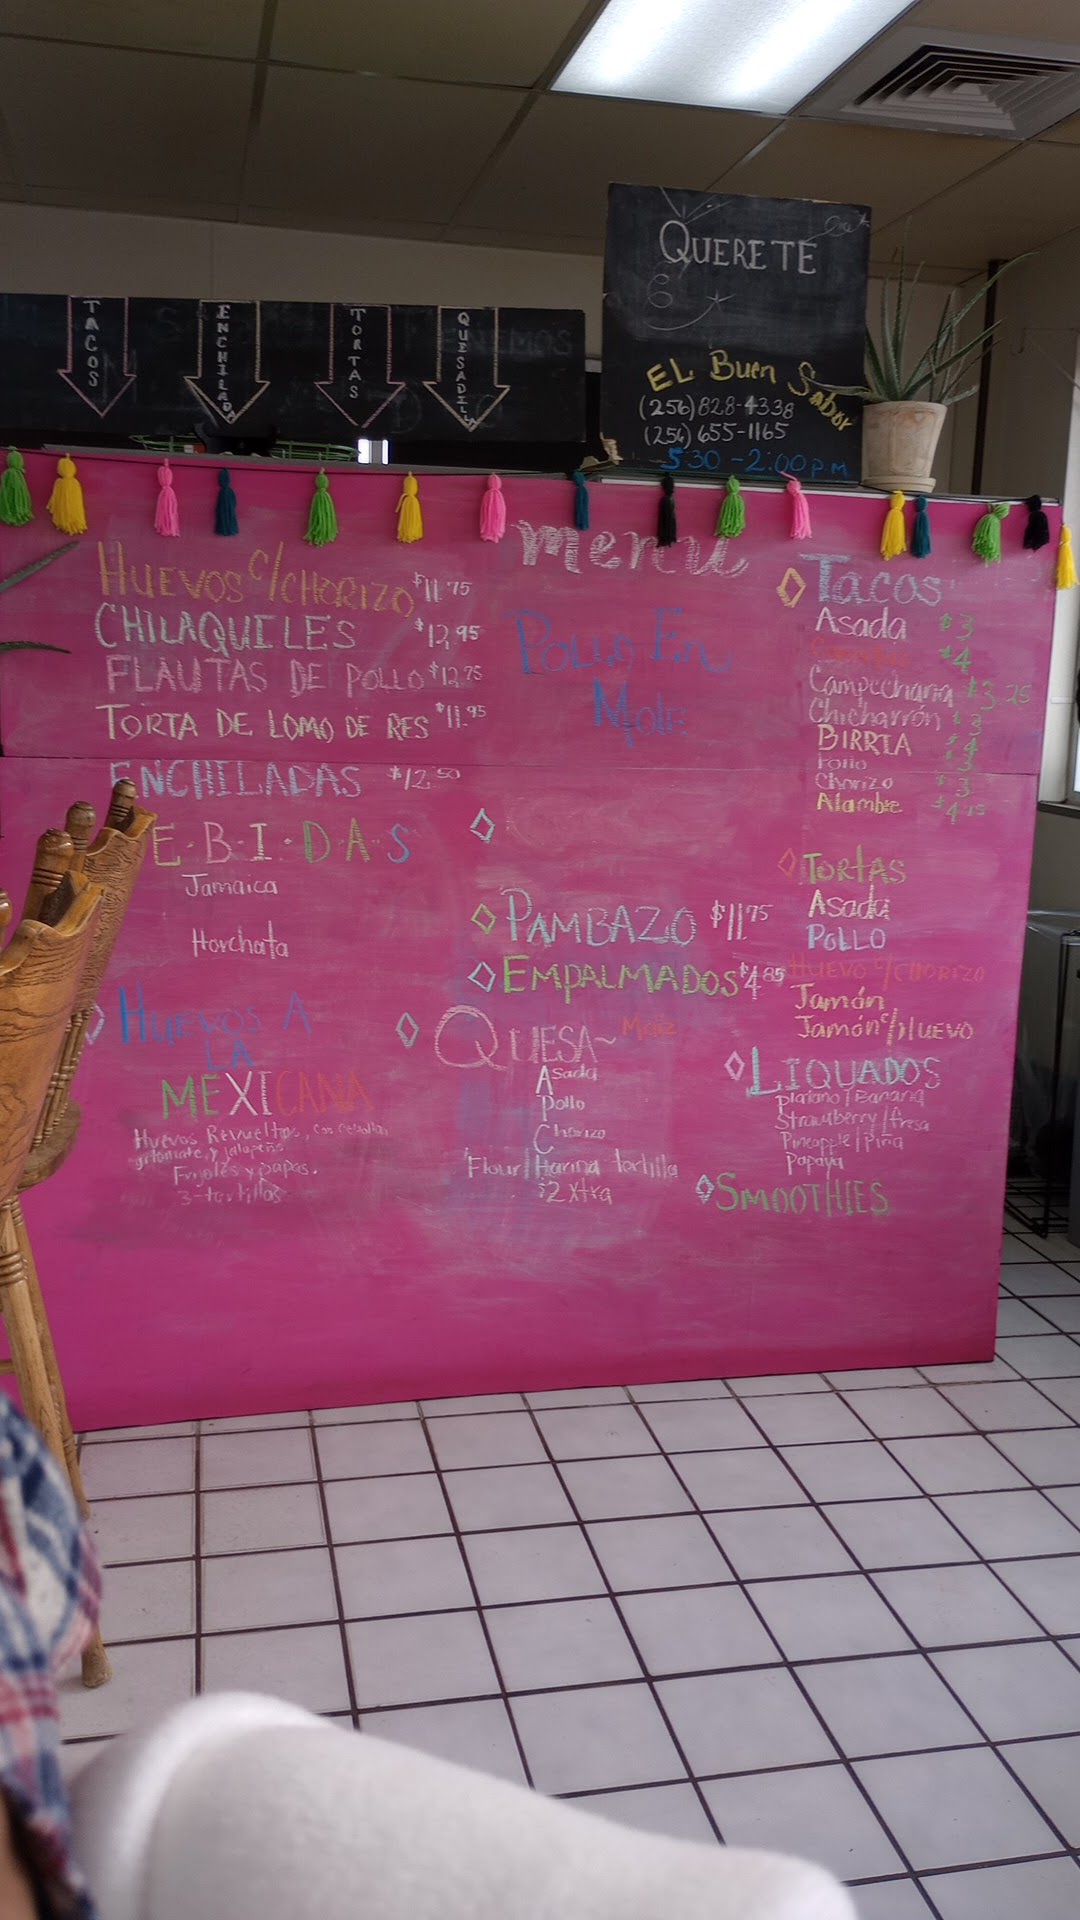 TACOS
ENCHILADA
TORTAS
QUESADILLA
TENEMOS
QUERETE
EL Buen Sabor
(256) 828-4338
(256) 655-1165
5:30 - 2:00 p.m
menu
HUEVOS C/CHORIZO $11.75
CHILAQUILES $12.95
FLAUTAS DE POLLO $12.75
TORTA DE LOMO DE RES $11.95
ENCHILADAS $12.50
E·B·I·D·A·S
Jamaica
Horchata
HUEVOS A
LA
MEXICANA
Huevos Revueltos, con cebolla,
jitomate, y jalapeño
Frijoles y papas.
3-tortillas
POLLO En
Mole
PAMBAZO $11.75
EMPALMADOS $4.85
QUESA~ Maiz
Asada
Pollo
Chorizo
Flour/Harina tortilla
$2 xtra
Tacos
Asada $3
$4
Campechana $3.25
Chicharrón $3
BIRRIA $4
Pollo $3
Chorizo $3
Alambre
TORTAS
Asada
POLLO
HUEVO C/CHORIZO
Jamón
Jamón c/HUEVO
LIQUADOS
platano/Banana
Strawberry/fresa
Pineapple/Piña
Papaya
SMOOTHIES